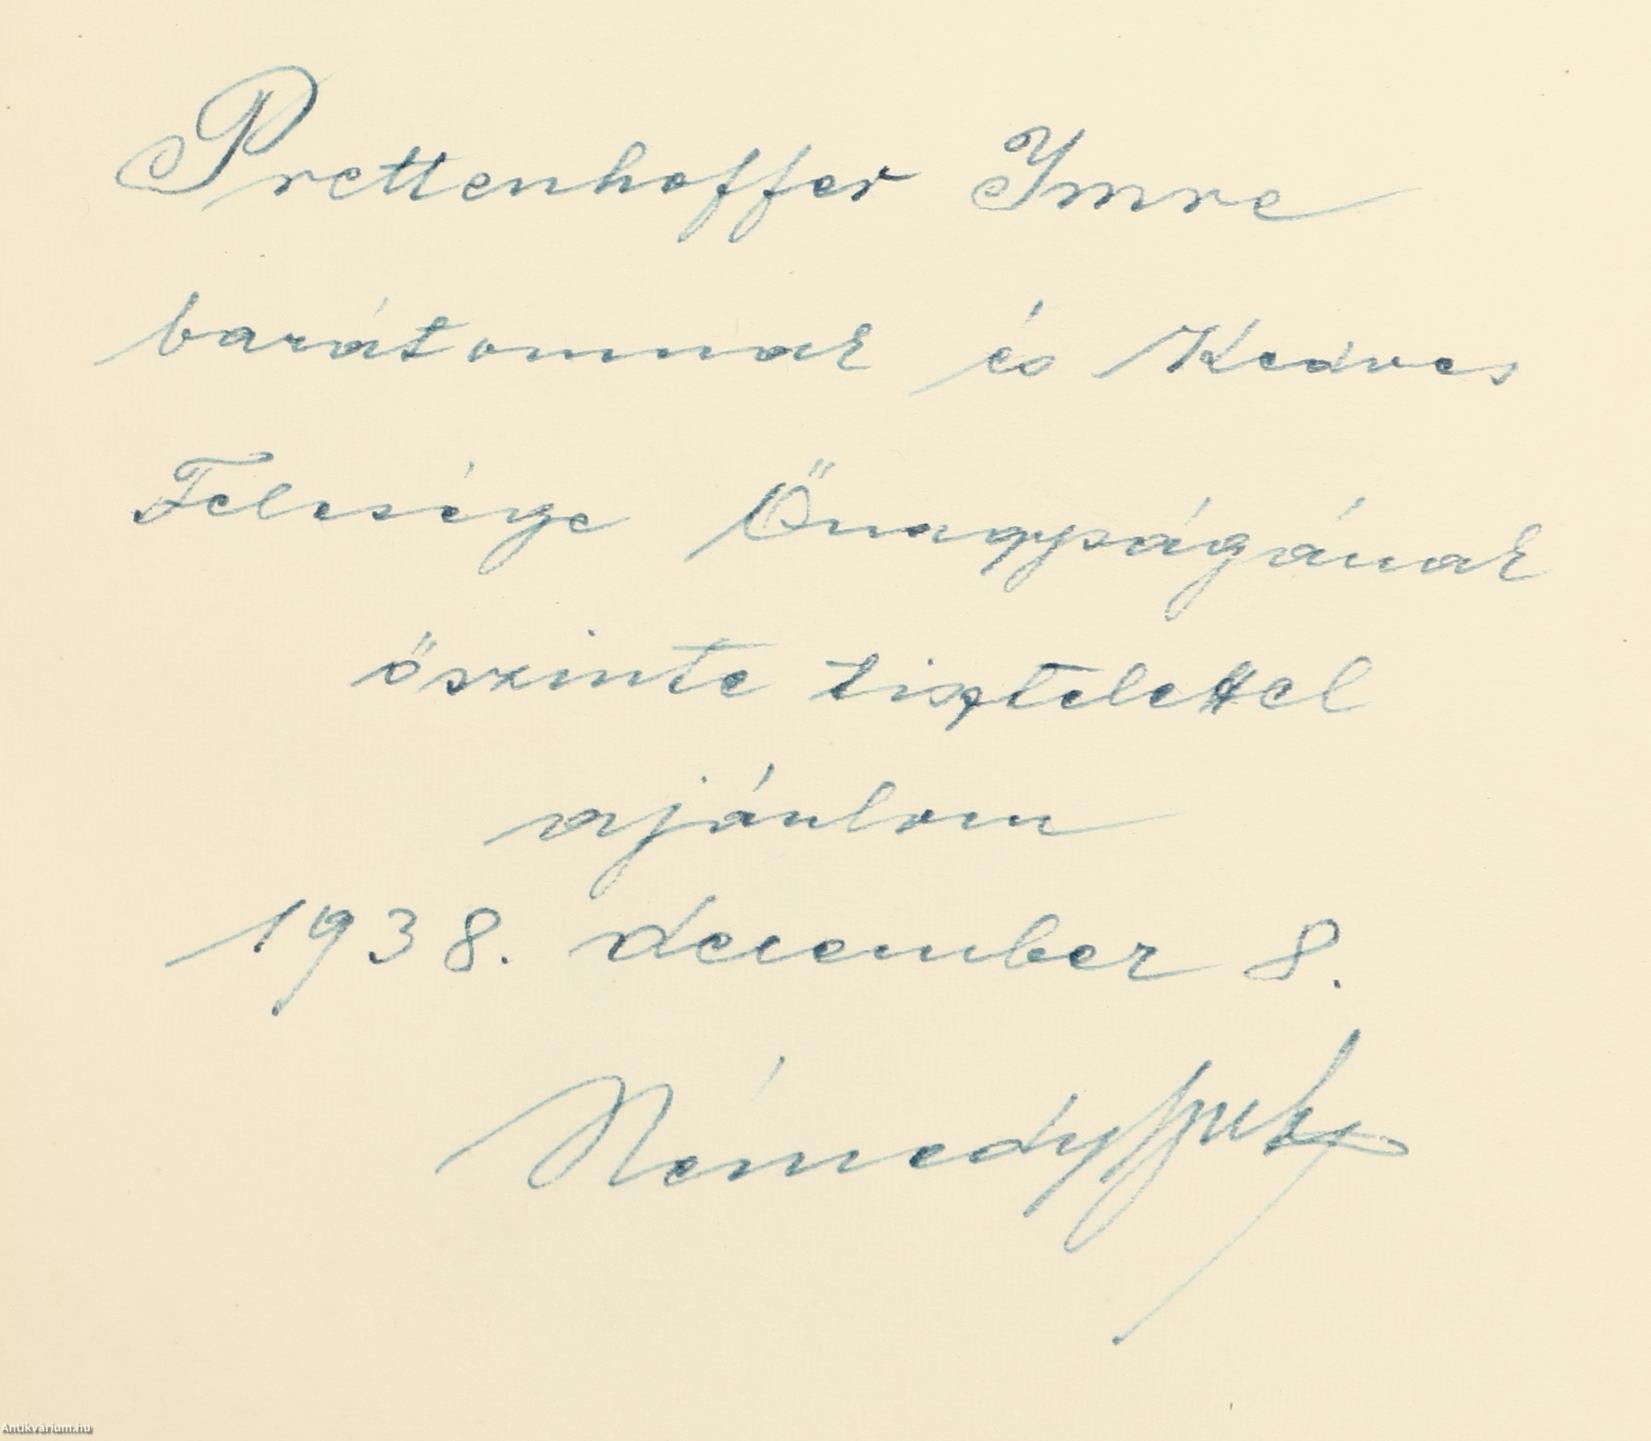 Prettenhoffer Imre
barátomnak és Kedves
Felesége Őnagyságának
őszinte tisztelettel
ajánlom
1938. december 8.
Némedy
Antikvárium.hu